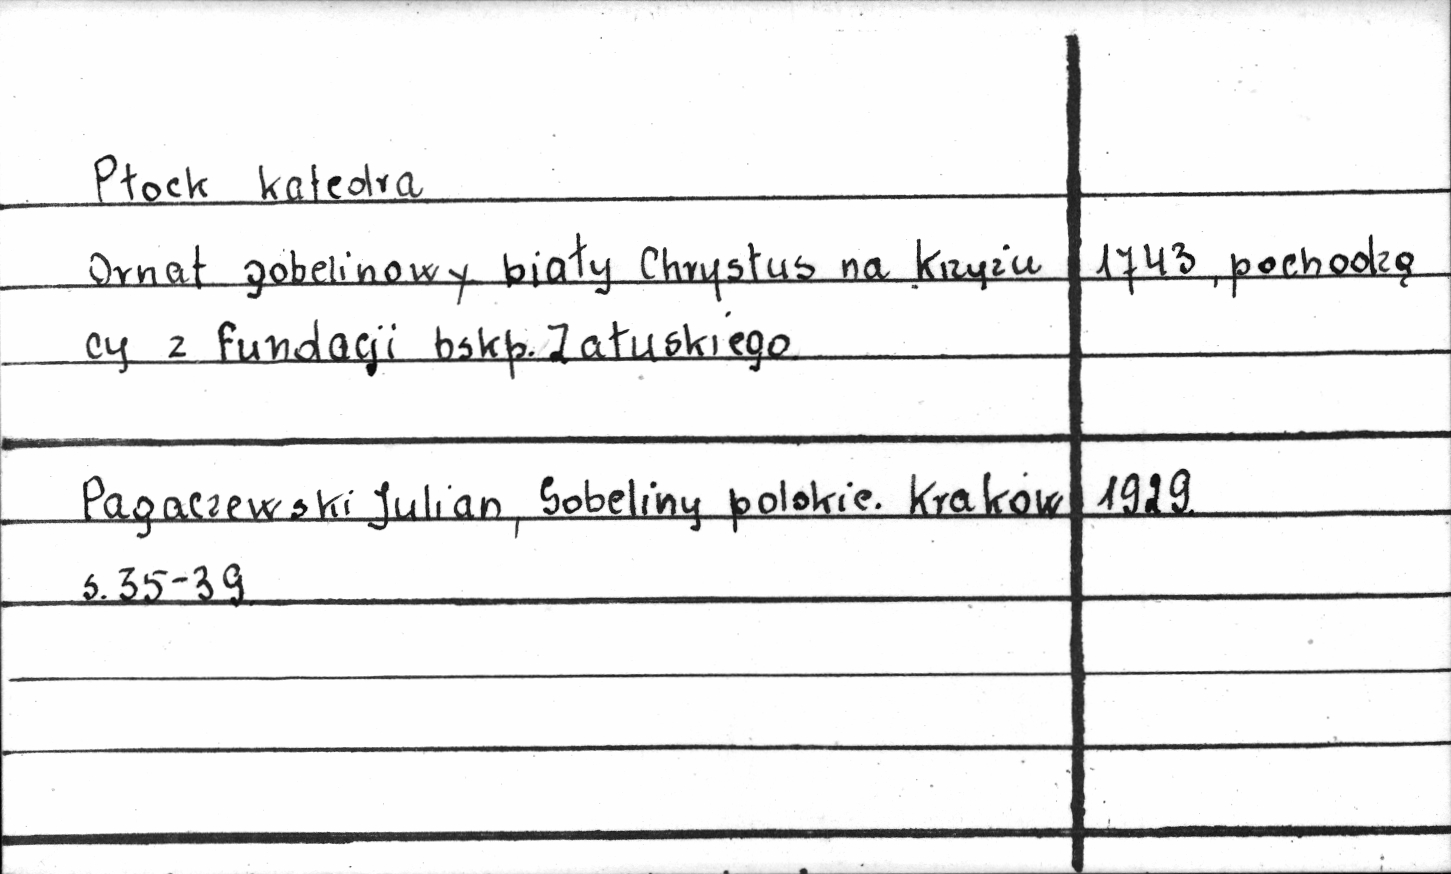 Płock katedra
Ornat gobelinowy biały Chrystus na Krzyżu 1743, pochodzą
cy z fundacji bskp. Załuskiego
Pagaczewski Julian, Gobeliny polskie. Kraków 1929.
s. 35-39